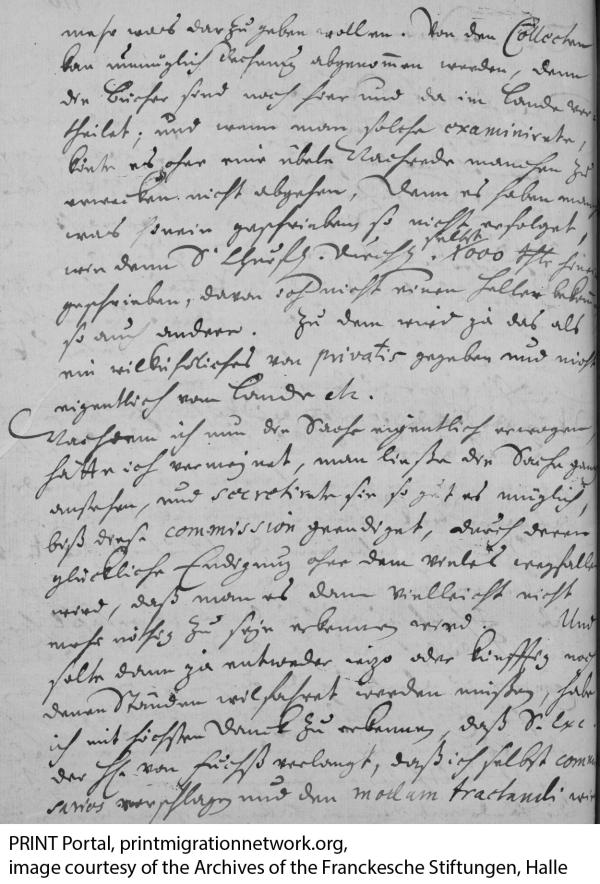 mehr was darzu geben wollen. Von den Collecten
kan unmüglich Rechnung abgenommen werden, denn
die Bücher sind noch hier und da im Lande ver-
theilet; und wenn man solche examinirete,
könte es ohne eine übele Nachrede manchen zu
erwecken nicht abgehen, denn es haben manche
was hinein geschrieben, so nicht erfolget,
wie denn Sr. Churfl. Durchl. selbst 1000 thlr hinein
geschrieben, davon ich nicht einen Heller bekommen
so auch andere. Zu dem wird ja das als
ein wilkührliches von privatis gegeben und nicht
eigentlich vom Lande etc.
Nachdem ich nun die Sache eigentlich erwogen,
hätte ich vermeinet, man ließe die Sache
anstehen, und secretirete sie so gut es müglich,
biß diese commission geendiget, durch deren
glückliche Endigung ohne dem vieles wegfallen
wird, daß man es dann vielleicht nicht
mehr nöthig zu sein erkennen wird. Und
solte dann ja entweder itzo oder künfftig noch
denen Ständen wilfahret werden müßen, habe
ich mit höchsten Danck zu erkennen, daß S. Exc.
der H. von Fuchß verlangt, daß ich selbst commis-
sarios vorschlage und den modum tractandi wie
PRINT Portal, printmigrationnetwork.org,
image courtesy of the Archives of the Franckesche Stiftungen, Halle